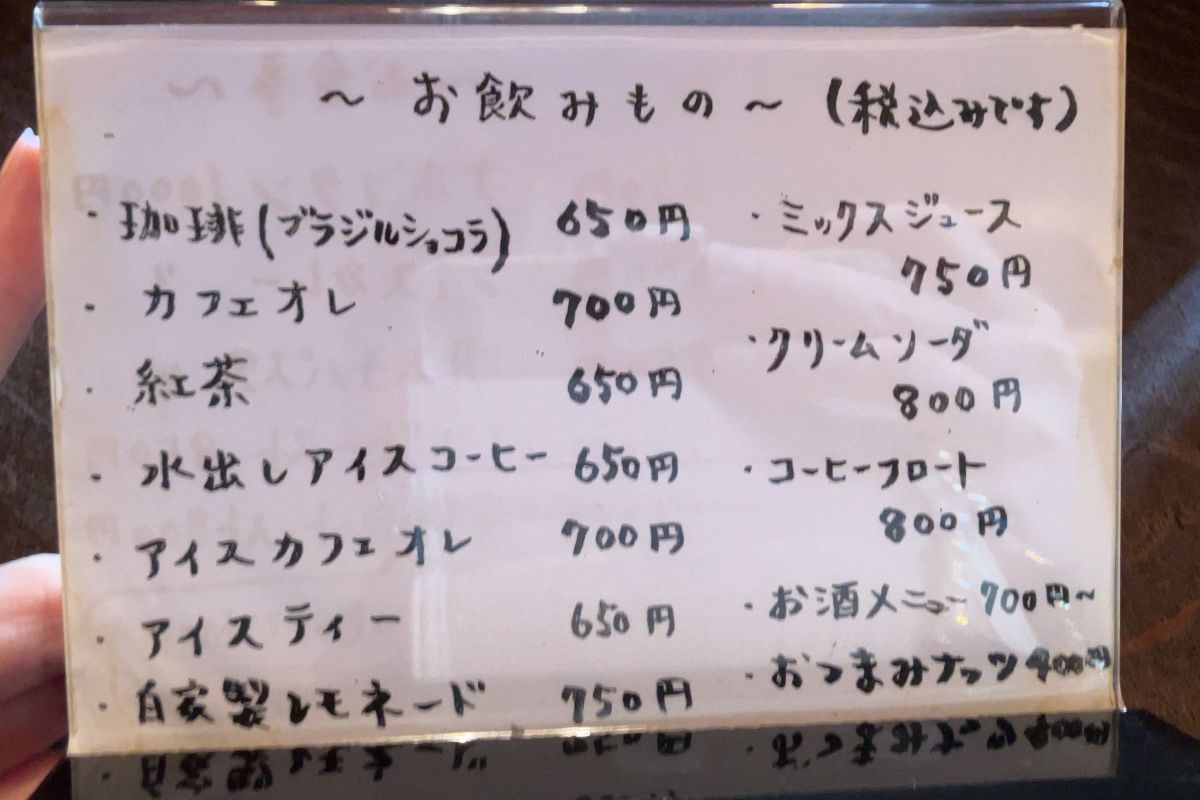 ～お飲みもの～(税込みです)
・珈琲(ブラジルショコラ) 650円
・カフェオレ 700円
・紅茶 650円
・水出しアイスコーヒー 650円
・アイスカフェオレ 700円
・アイスティー 650円
・自家製レモネード 750円
・ミックスジュース
750円
・クリームソーダ
800円
・コーヒーフロート
800円
・お酒メニュー 700円～
・おつまみナッツ 400円